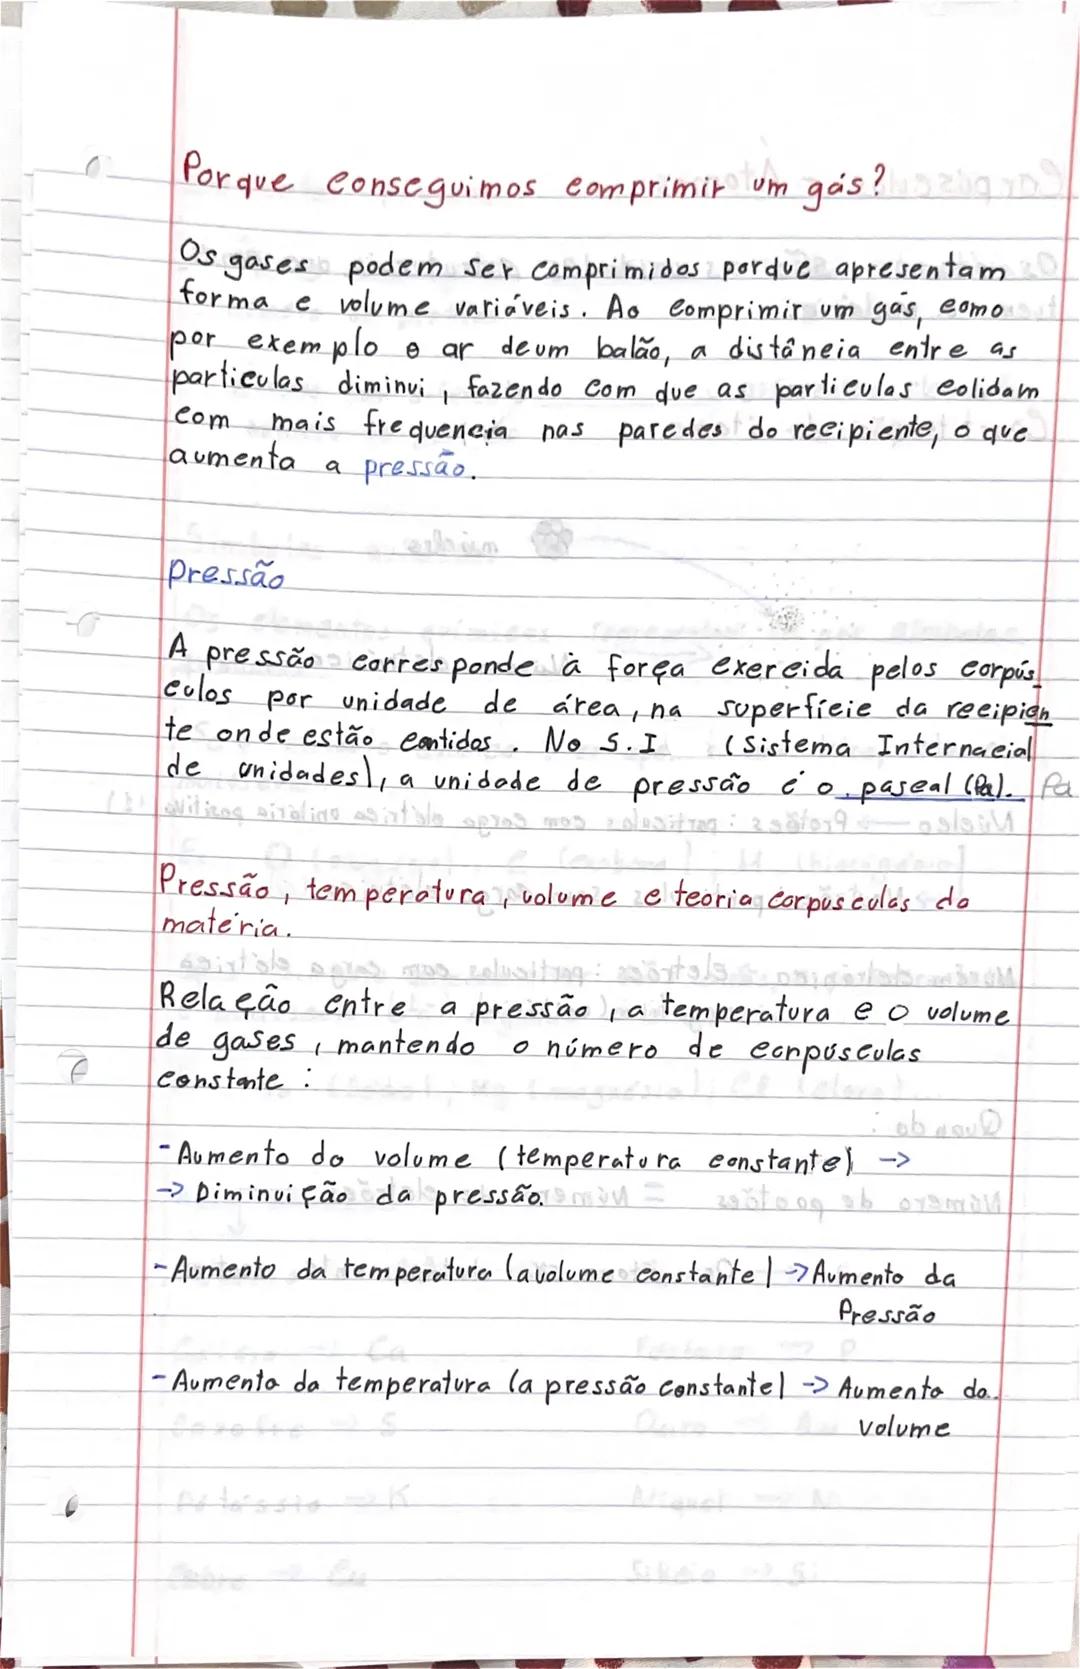 Porque conseguimos comprimir um gás?
Os gases podem ser comprimidos porque apresentam
forma e volume variáveis. Ao comprimir um gás, como
por exemplo o ar de um balão, a distância entre as
particulas diminui, fazendo com que as particulas colidam
com mais frequencia nas paredes do recipiente, o que
aumenta a pressão.
Pressão
A pressão corresponde à força exercida pelos corpús_
culos por unidade de área, na superfície da recipien
te onde estão contidos. No S.I (Sistema Internacial
de unidades), a unidade de pressão é o pascal (Pa). Pa
Pressão, temperatura, volume e teoria corpusculas da
matéria.
Relação entre a pressão, a temperatura e o volume
de gases, mantendo o número de corpúsculas
constante :
- Aumento do volume (temperatura constante) ->
-> Diminuição da pressão.
- Aumento da temperatura (a volume constante) -> Aumento da
Pressão
- Aumento da temperatura (a pressão constante) -> Aumento do
volume